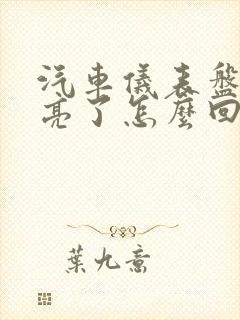 汽車儀表盤
亮了怎麼回
葉九意